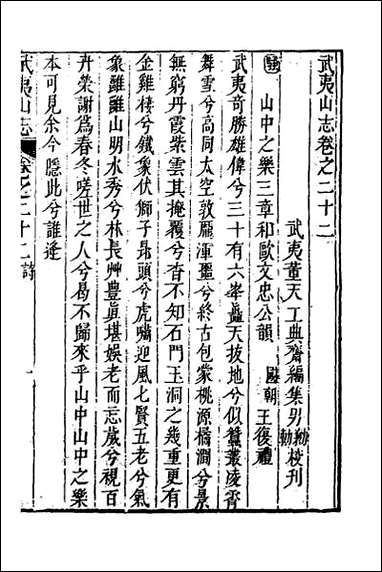 武夷山志卷之二十二
武夷董天工典齋編集男
校刊
詩
山中之樂三章和歐文忠公韻 國朝 王復禮
武夷奇勝雄偉兮三十有六峯矗天拔地兮似鸞叢凌霄
舞雪兮高同太空敦龐渾噩兮終古包蒙桃源橘澗兮景
無窮丹霞紫雲其掩覆兮杳不知石門玉洞之幾重更有
金雞棲兮鐵象伏獅子昻頭兮虎嘯迎風七賢五老兮氣
象雝雝山明水秀兮林長艸豐眞堪娱老而忘歲兮視百
卉榮謝爲春冬嗟世之人兮曷不歸來乎山中山中之樂
本可見余今隱此兮誰逢
武夷山志
卷之二十二 詩
一